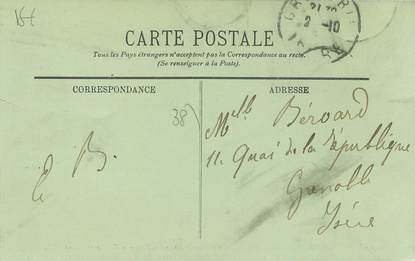 15f
CARTE POSTALE
Tous les Pays étrangers n'acceptent pas la Correspondance au recto.
(Se renseigner à la Poste).
CORRESPONDANCE
ADRESSE
38
E B.
Melle Bérard
11. Quai de la République
Grenoble
Isère